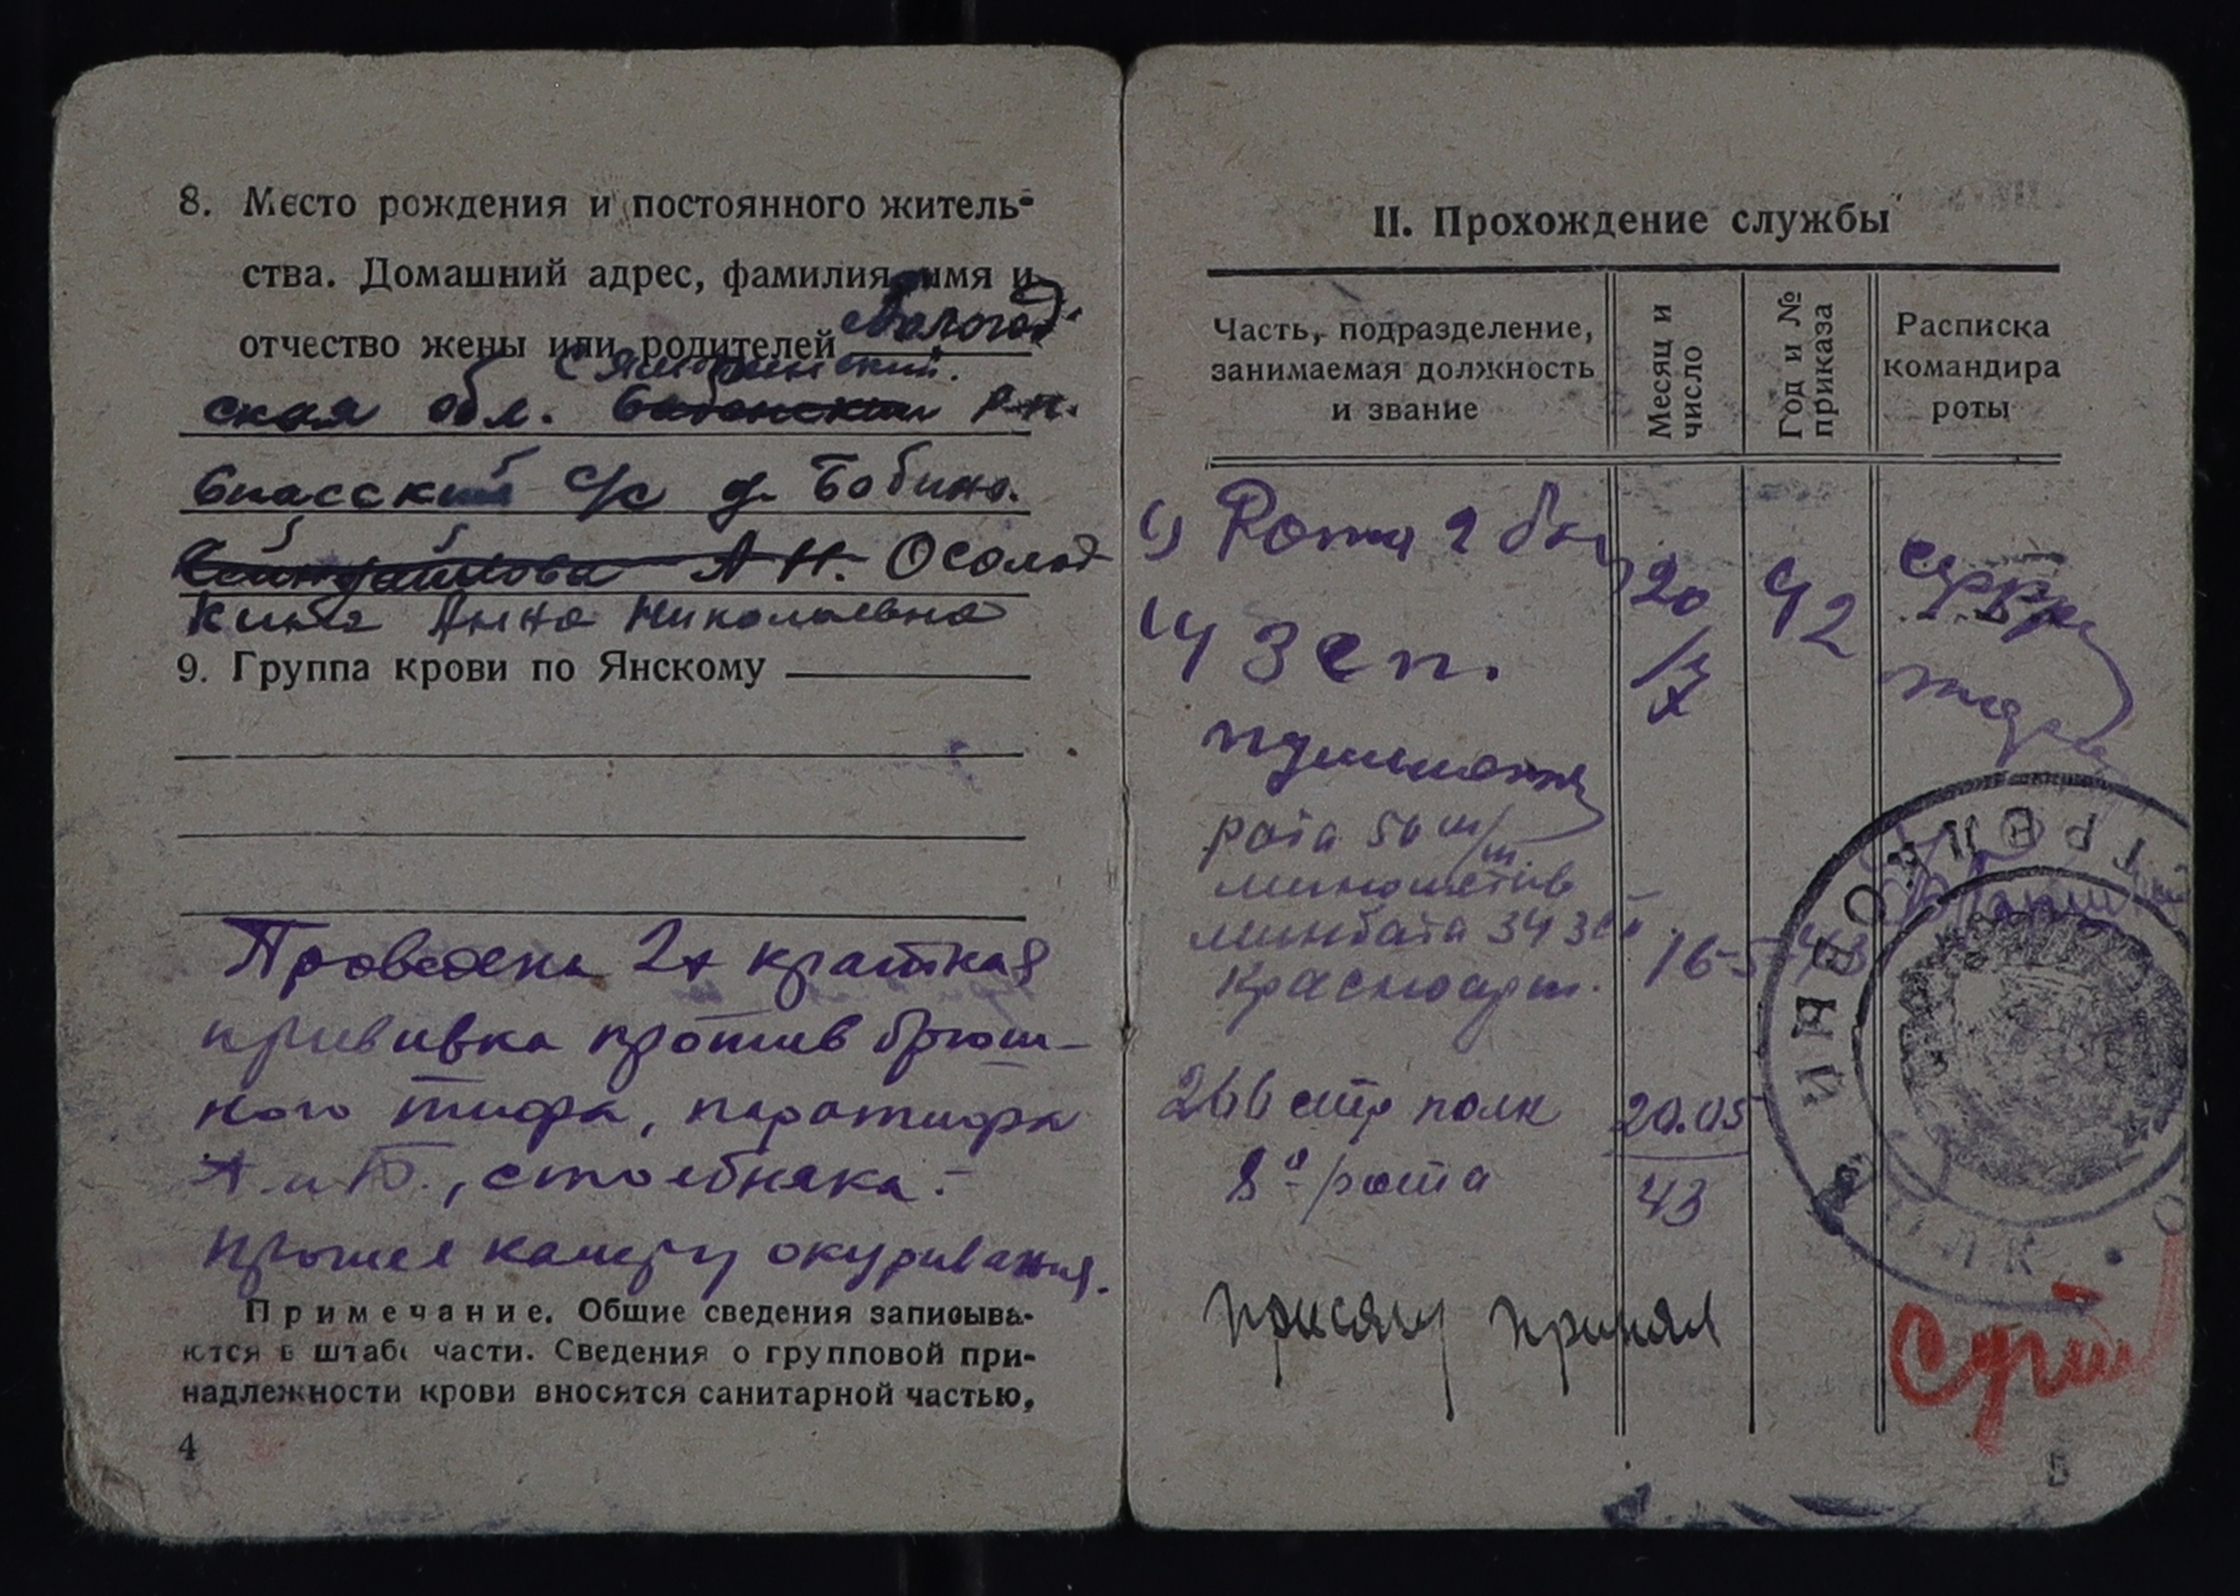 8. Место рождения и постоянного житель-
ства. Домашний адрес, фамилия, имя и
отчество жены или родителей Вологод
Сямженский.
ская обл. р-н.
Спасский с/с д. Бобино.
А Н. Осолод
кина Анна Николаевна
9. Группа крови по Янскому
Проведена 2х кратная
прививка против брюш-
ного тифа, паратифа
А и Б., столбняка.-
прошел камеру окуривания.
Примечание. Общие сведения записыва-
ются в штабе части. Сведения о групповой при-
надлежности крови вносятся санитарной частью,
4
II. Прохождение службы
Часть, подразделение,
занимаемая должность
и звание
Месяц и
число
Год и №
приказа
Расписка
командира
роты
Рота 2
20 42
зсп.
рота 50 м/м.
минометов
минбата 34 зсп
Красноарм. 16-5-43
266 стр полк 20.05
8я рота 43
присягу принял
5